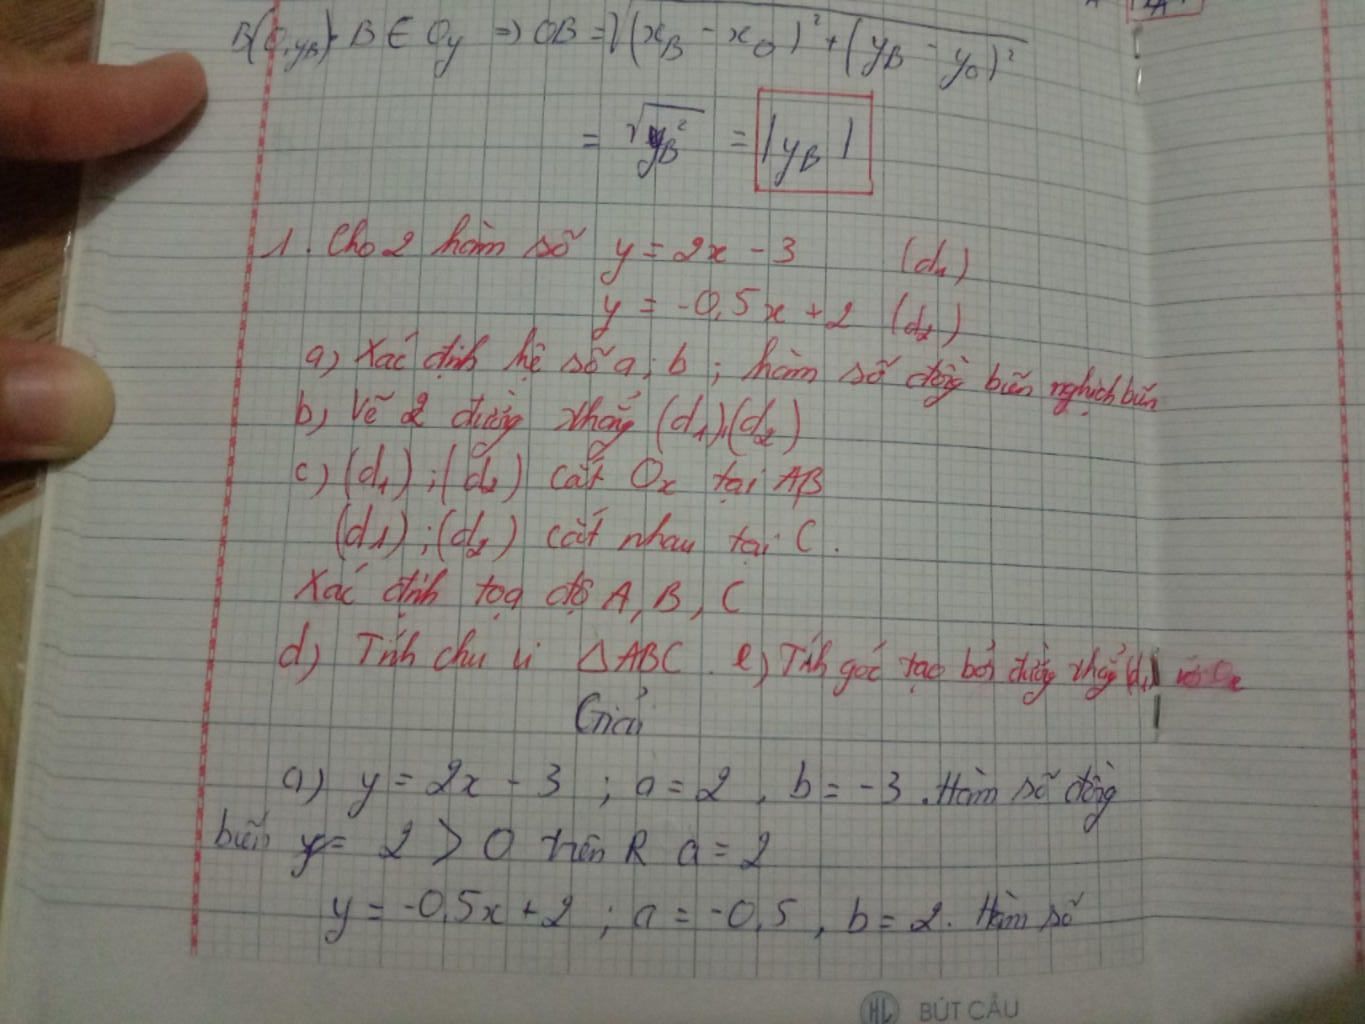 B(0,yB). B ∈ Oy ⇒ OB = √(xB - xO)² + (yB - yO)²
= √yB² = |yB|
1. Cho 2 hàm số y = 2x - 3 (d1)
y = -0,5x + 2 (d2)
a) Xác định hệ số a; b; hàm số đồng biến nghịch biến
b) Vẽ 2 đường thẳng (d1),(d2)
c) (d1); (d2) cắt Ox tại AB
(d1); (d2) cắt nhau tại C.
Xác định tọa độ A, B, C
d) Tính chu vi △ABC. e) Tính góc tạo bởi đường thẳng (d1) với Ox
Giải
a) y = 2x - 3 ; a = 2 , b = -3 . Hàm số đồng
biến y = 2 > 0 trên R a = 2
y = -0,5x + 2 ; a = -0,5 , b = 2. Hàm số
HL BÚT CÂU